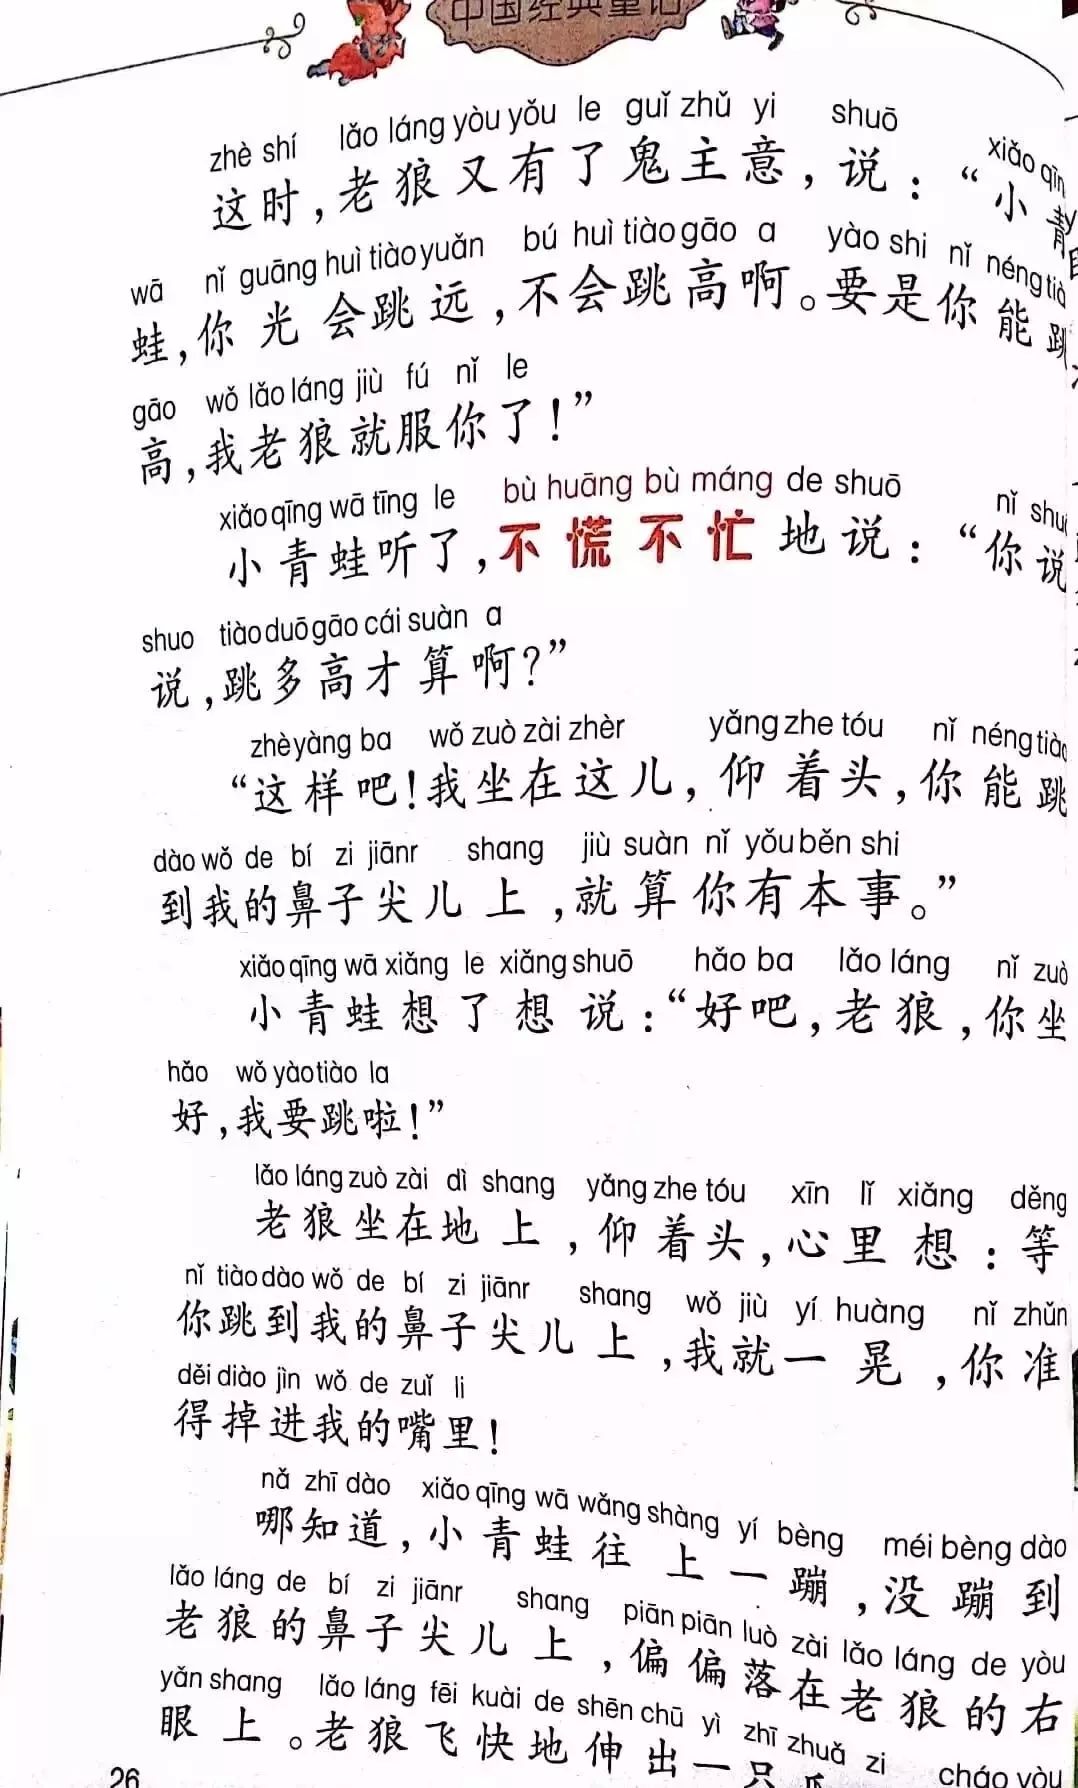 中国经典童话
zhè shí lǎo láng yòu yǒu le guǐ zhǔ yi shuō xiǎo qīng
这时，老狼又有了鬼主意，说：“小青
wā nǐ guāng huì tiào yuǎn bú huì tiào gāo a yào shi nǐ néng tiào
蛙，你光会跳远，不会跳高啊。要是你能跳
gāo wǒ lǎo láng jiù fú nǐ le
高，我老狼就服你了！”
xiǎo qīng wā tīng le bù huāng bù máng de shuō nǐ shuō
小青蛙听了，不慌不忙地说：“你说
shuo tiào duō gāo cái suàn a
说，跳多高才算啊？”
zhè yàng ba wǒ zuò zài zhèr yǎng zhe tóu nǐ néng tiào
“这样吧！我坐在这儿，仰着头，你能跳
dào wǒ de bí zi jiānr shang jiù suàn nǐ yǒu běn shi
到我的鼻子尖儿上，就算你有本事。”
xiǎo qīng wā xiǎng le xiǎng shuō hǎo ba lǎo láng nǐ zuò
小青蛙想了想说：“好吧，老狼，你坐
hǎo wǒ yào tiào la
好，我要跳啦！”
lǎo láng zuò zài dì shang yǎng zhe tóu xīn lǐ xiǎng děng
老狼坐在地上，仰着头，心里想：等
nǐ tiào dào wǒ de bí zi jiānr shang wǒ jiù yí huàng nǐ zhǔn
你跳到我的鼻子尖儿上，我就一晃，你准
děi diào jìn wǒ de zuǐ li
得掉进我的嘴里！
nǎ zhī dào xiǎo qīng wā wǎng shàng yí bèng méi bèng dào
哪知道，小青蛙往上一蹦，没蹦到
lǎo láng de bí zi jiānr shang piān piān luò zài lǎo láng de yòu
老狼的鼻子尖儿上，偏偏落在老狼的右
yǎn shang lǎo láng fēi kuài de shēn chū yì zhī zhuǎ zi cháo yòu
眼上。老狼飞快地伸出一只爪
26